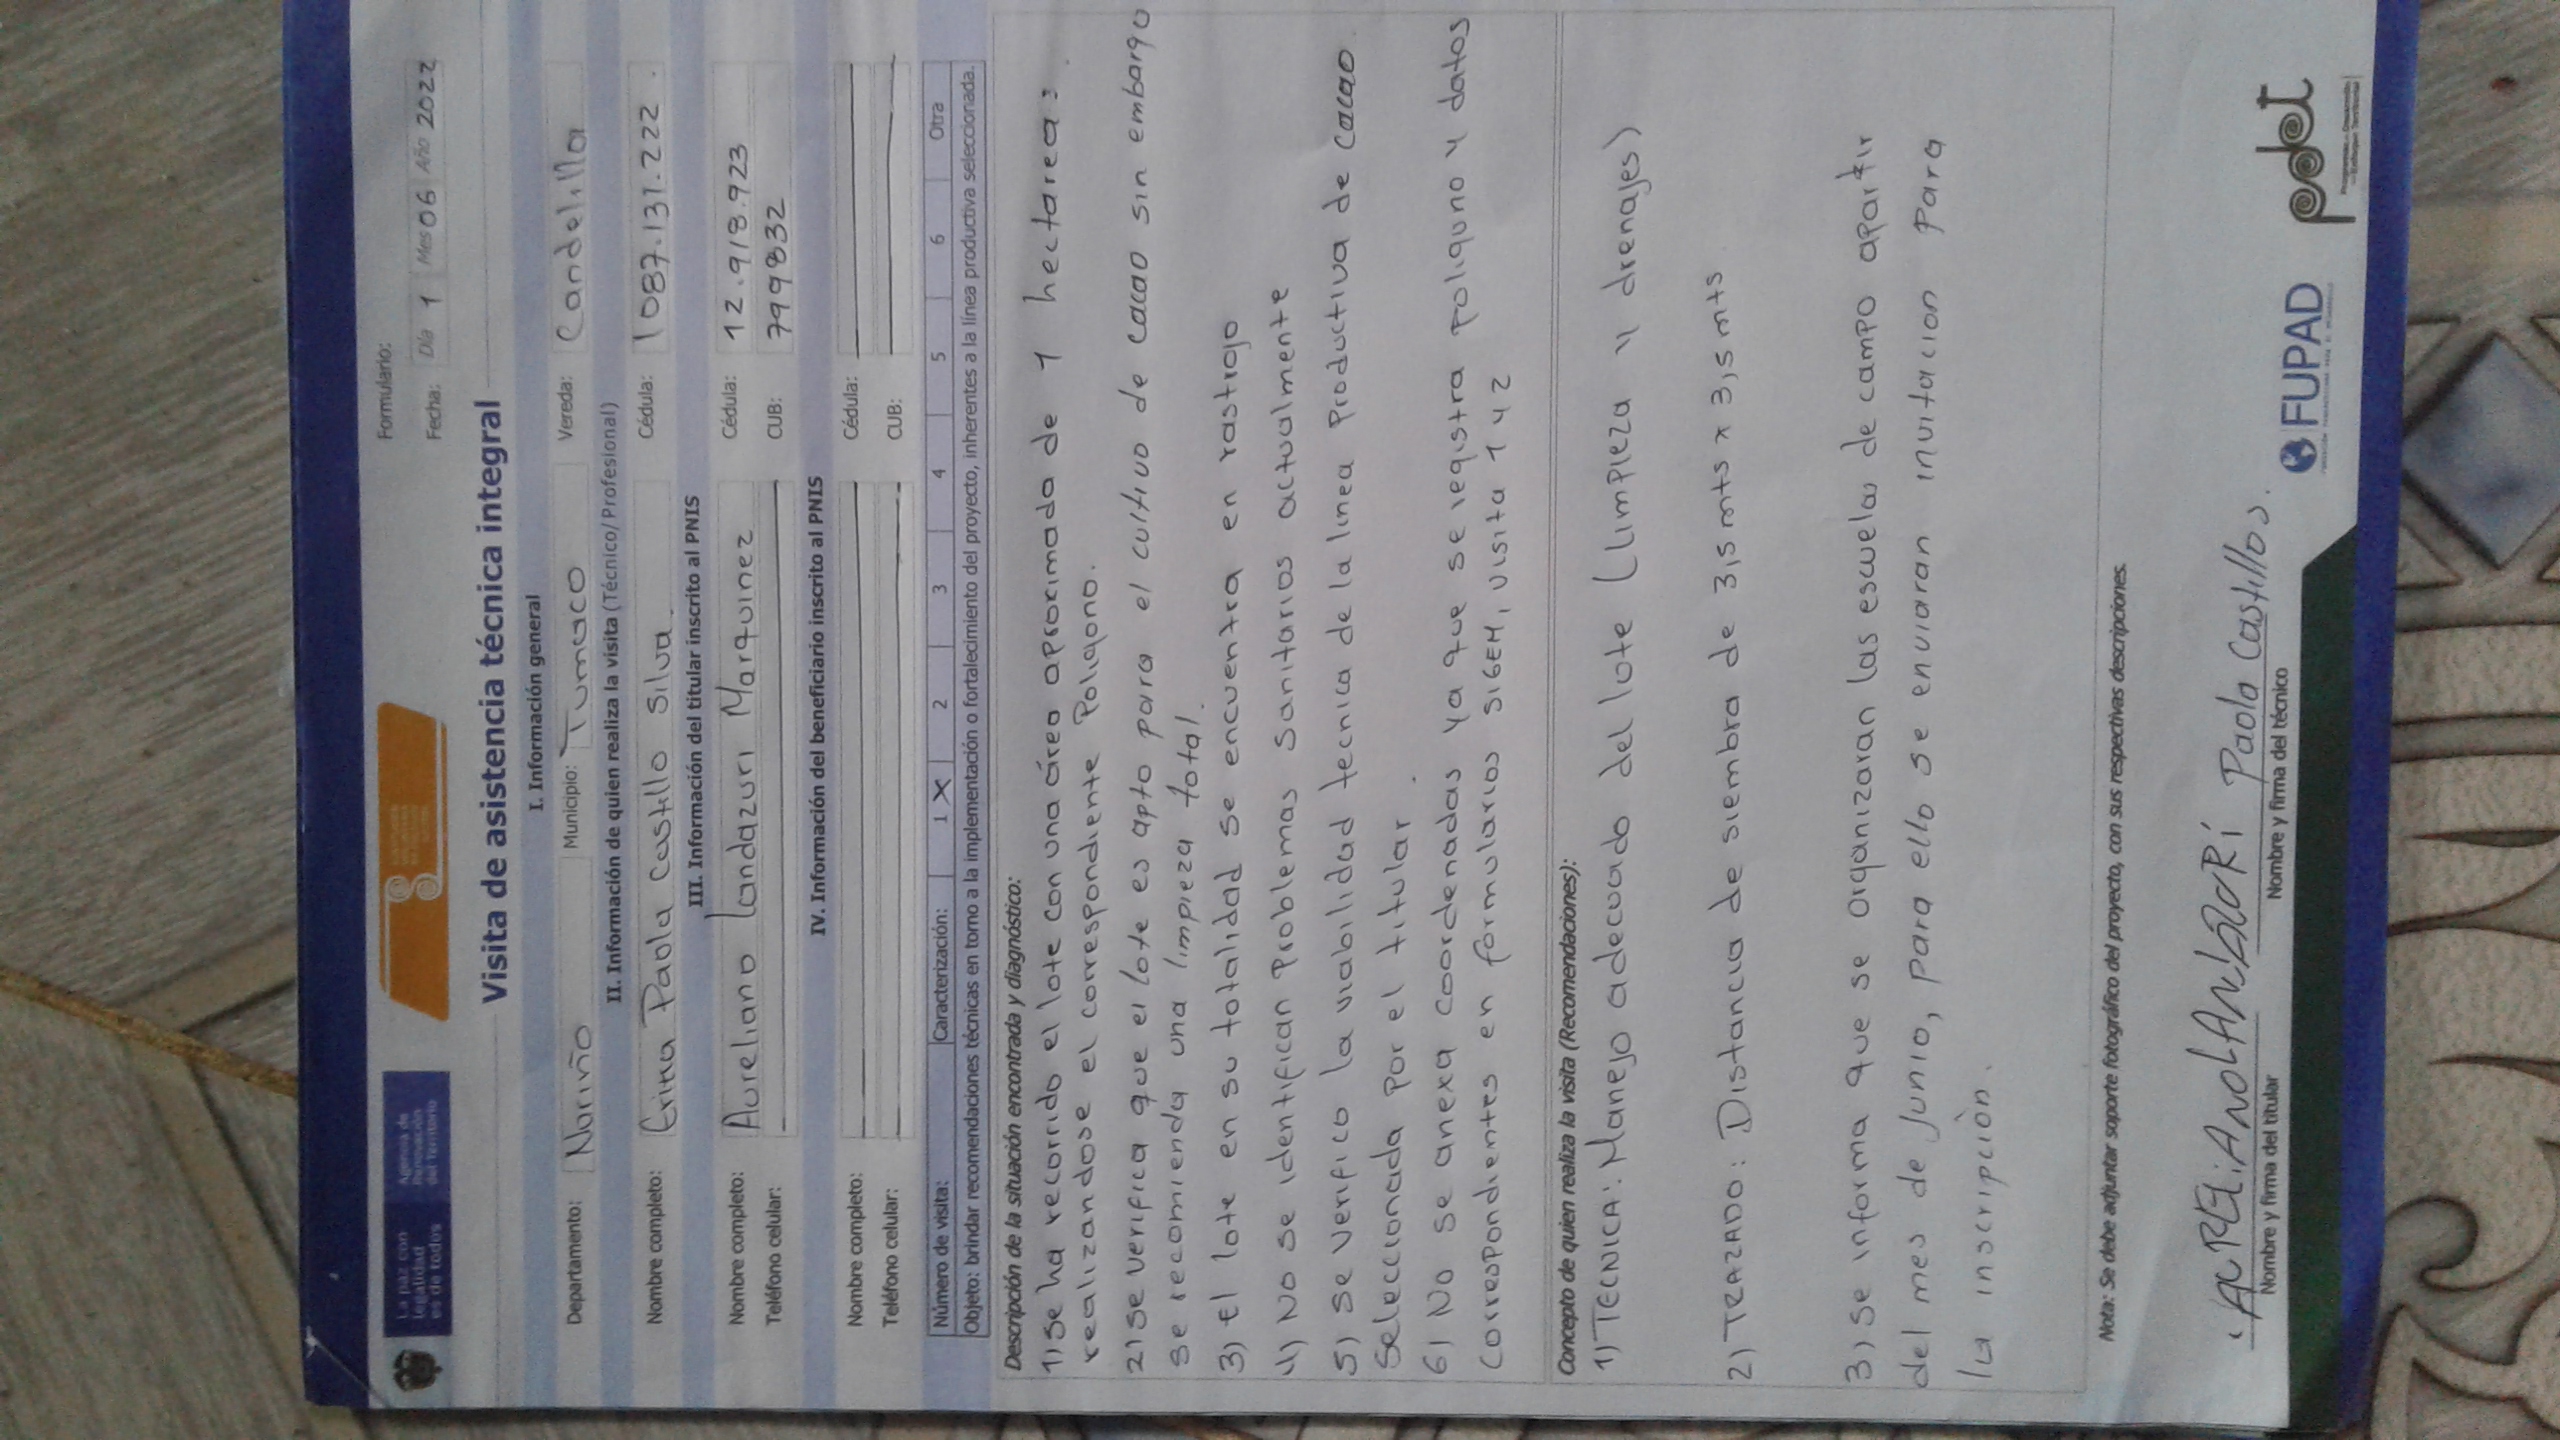 La paz con
legalidad
es de todos
Agencia de
Renovación
del Territorio
Formulario:
Fecha: Día 1 Mes 06 Año 2022
Visita de asistencia técnica integral
I. Información general
Departamento: Nariño Municipio: Tumaco Vereda: Candelilla
II. Información de quien realiza la visita (Técnico/Profesional)
Nombre completo: Erika Paola Castillo Silva. Cédula: 1087.131.222.
III. Información del titular inscrito al PNIS
Nombre completo: Aureliano Landazuri Marquinez Cédula: 12.918.923
Teléfono celular: CUB: 799832
IV. Información del beneficiario inscrito al PNIS
Nombre completo: Cédula:
Teléfono celular: CUB:
Número de visita: Caracterización: 1 X 2 3 4 5 6 Otra
Objeto: brindar recomendaciones técnicas en torno a la implementación o fortalecimiento del proyecto, inherentes a la línea productiva seleccionada.
Descripción de la situación encontrada y diagnóstico:
1) Se ha recorrido el lote con una área aproximada de 1 hectarea:
realizandose el correspondiente Poligono.
2) Se verifica que el lote es apto para el cultivo de cacao sin embargo
se recomienda una limpieza total.
3) El lote en su totalidad se encuentra en rastrojo
4) No se identifican Problemas Sanitarios actualmente
5) Se verifico la viabilidad tecnica de la linea Productiva de cacao
Seleccionada por el titular.
6) No se anexa coordenadas ya que se registra poliguno y datos
Correspondientes en formularios SIGEM, visita 1 y 2
Concepto de quien realiza la visita (Recomendaciones):
1) TECNICA: Manejo adecuado del lote (Limpieza y drenajes)
2) TRAZADO: Distancia de siembra de 3,5 mts x 3,5 mts
3) Se informa que se organizaran las escuelas de campo apartir
del mes de Junio, para ello se enviaran invitacion para
la inscripción.
Nota: Se debe adjuntar soporte fotográfico del proyecto, con sus respectivas descripciones.
Paola Castillo S.
Nombre y firma del titular
Nombre y firma del técnico
FUPAD
pdet